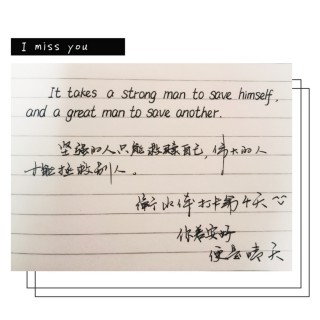 I miss you
It takes a strong man to save himself,
and a great man to save another.
坚强的人只能救赎自己，伟大的人
才能拯救别人。
衡水体打卡第4天~
你若安好
便是晴天